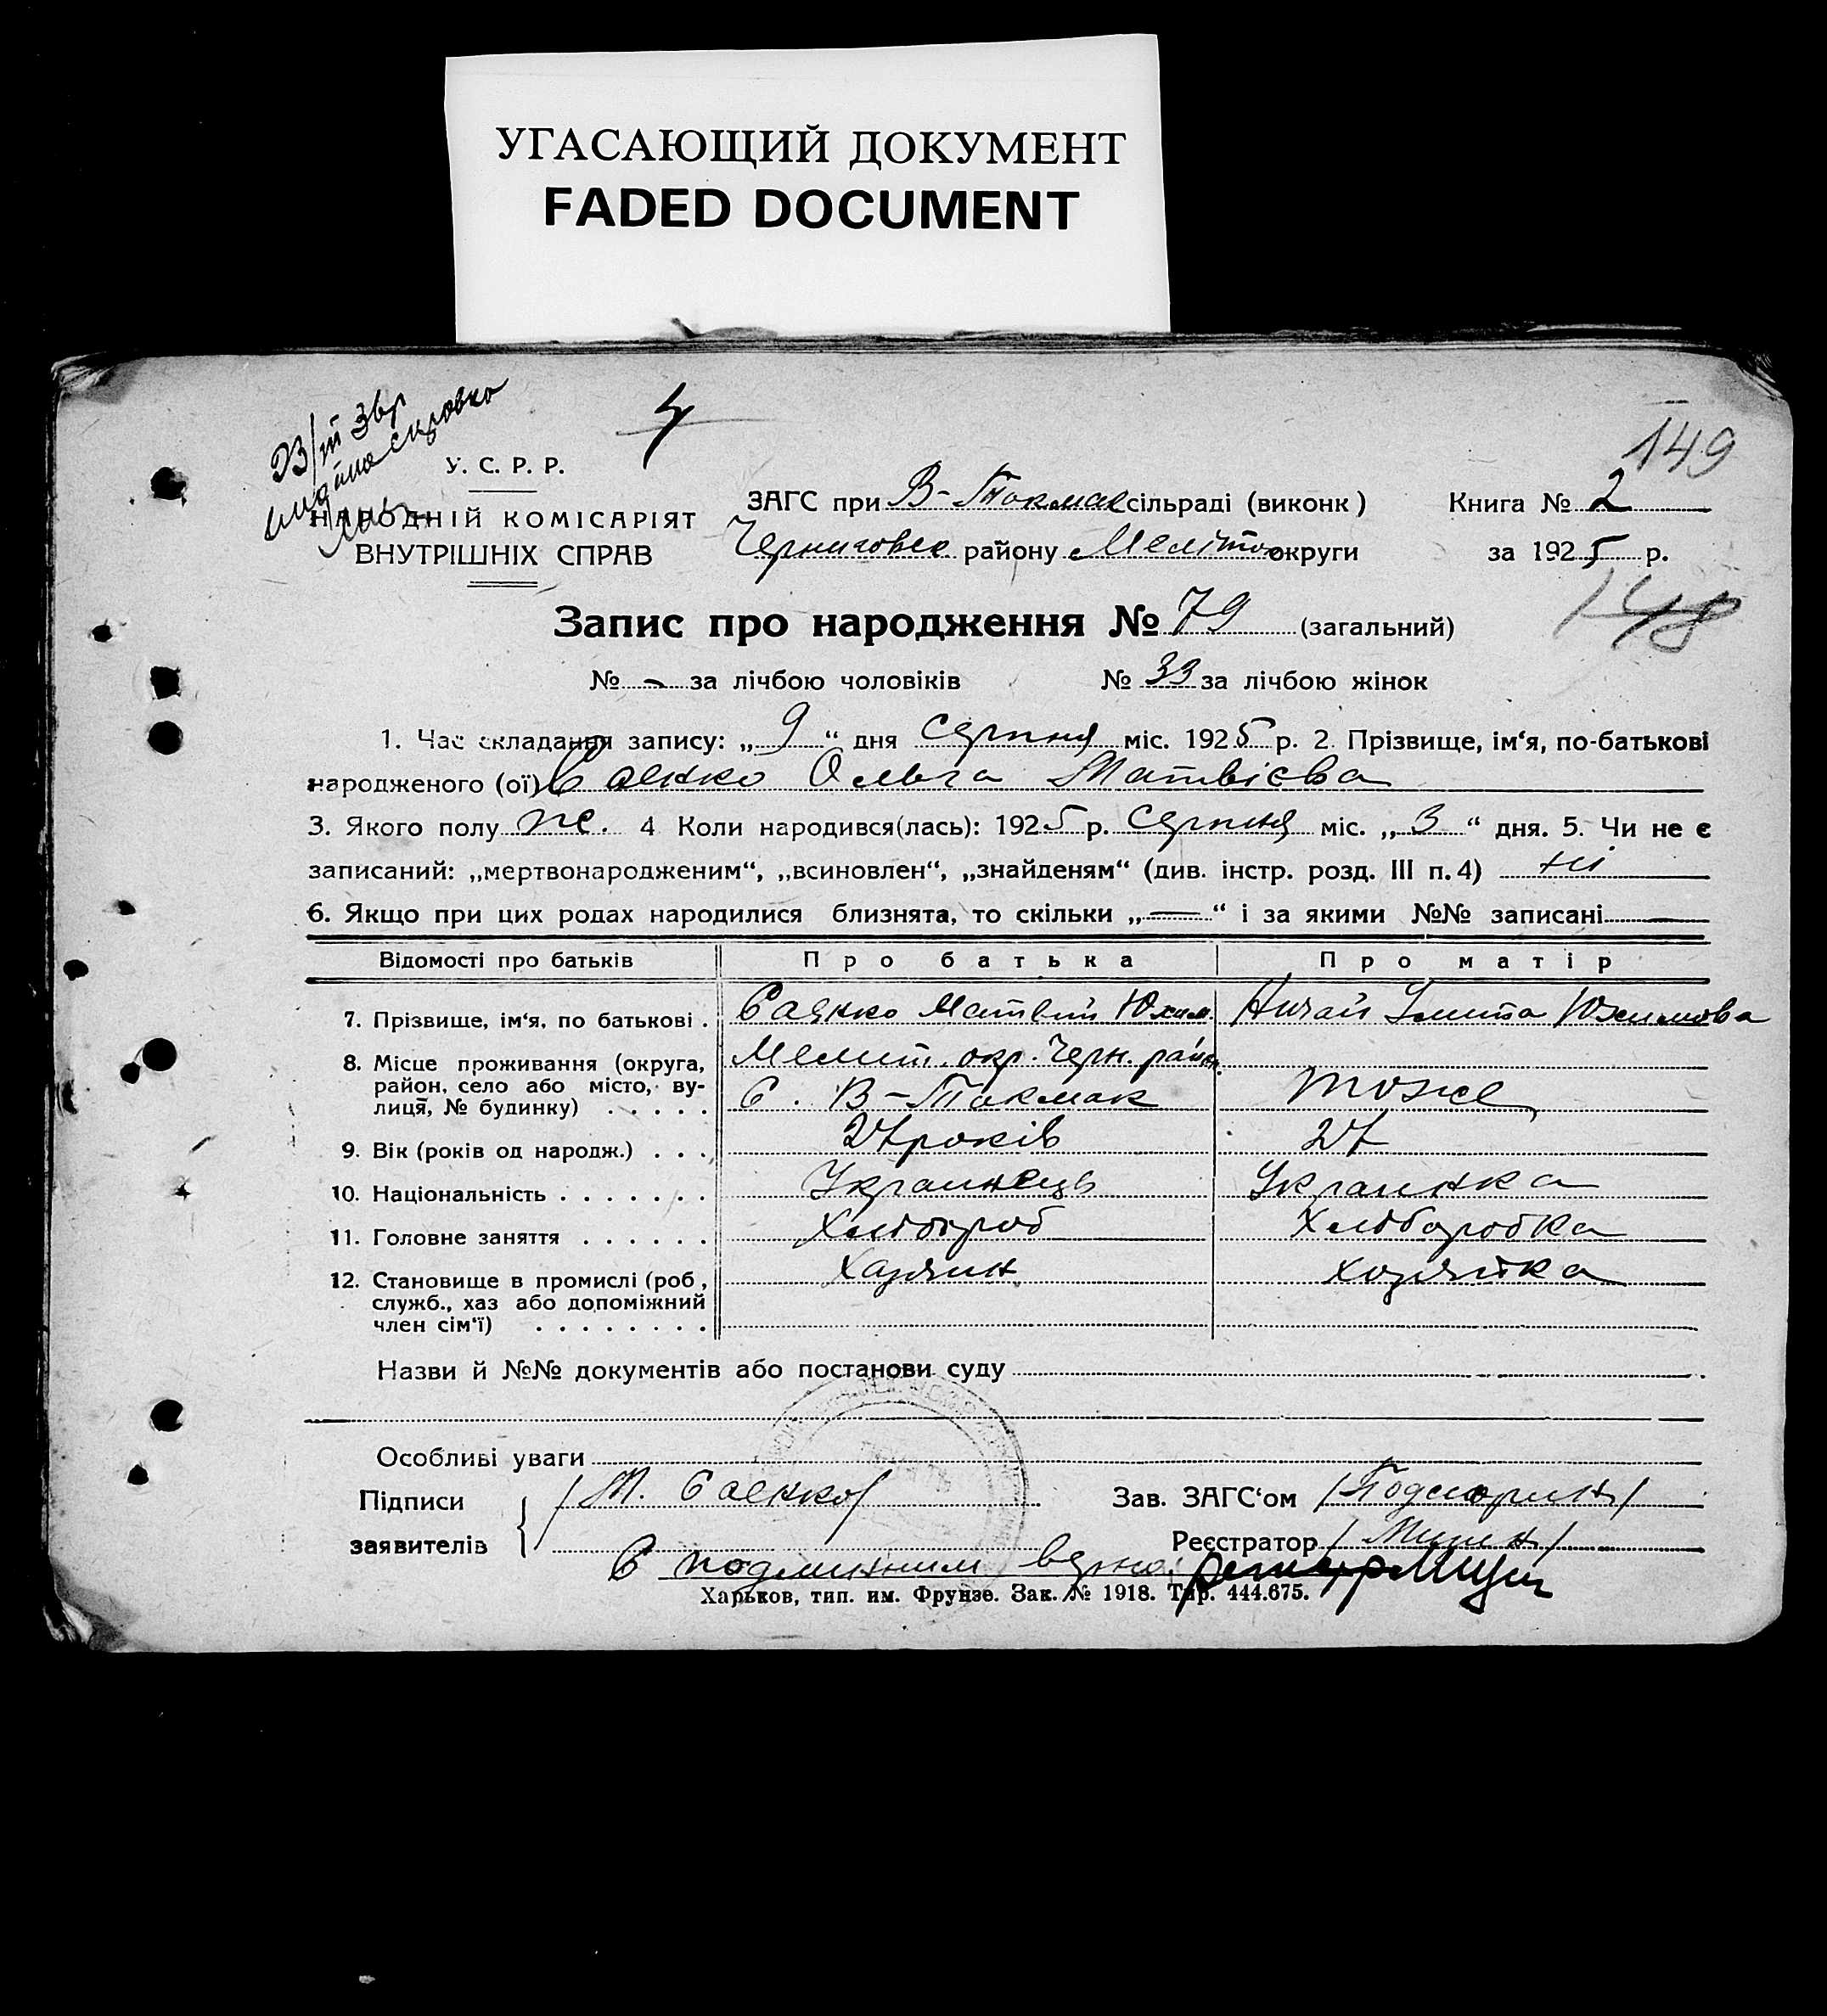 УГАСАЮЩИЙ ДОКУМЕНТ
FADED DOCUMENT
149
У. С. Р. Р.
НАРОДНІЙ КОМІСАРІЯТ
ВНУТРІШНІХ СПРАВ
ЗАГС при В-Токмак сільраді (виконк)
Черниговск району Меліто округи
Книга № 2
за 1925 р.
148
Запис про народження № 79 (загальний)
№ - за лічбою чоловіків № 33 за лічбою жінок
1. Час складання запису: „ 9 “ дня серпня міс. 1925 р. 2. Прізвище, ім‘я, по-батькові
народженого (ої) Саенко Ольга Матвієва
3. Якого полу же. 4 Коли народився(лась): 1925 р. серпня міс. „ 3 “ дня. 5. Чи не є
записаний: „мертвонародженим“, „всиновлен“, „знайденям“ (див. інстр. розд. III п. 4) ні
6. Якщо при цих родах народилися близнята, то скільки „ — “ і за якими №№ записані —
Відомості про батьків Про батька Про матір
7. Прізвище, ім‘я, по батькові . Саенко Матвій Юхим. Ничай Улита Юхимова
8. Місце проживання (округа, район, село або місто, вулиця, № будинку) . . . . . Мелит. окр. Черн. район.
С. В-Токмак тоже
9. Вік (років од народж.) . . . 27 років 27
10. Національність . . . . . . . Украинець Украинка
11. Головне заняття . . . . . . Хлібороб Хліборобка
12. Становище в промислі (роб, служб., хаз або допоміжний член сім‘ї) . . . . . . . . Хазяин хозяйка
Назви й №№ документів або постанови суду
Особливі уваги
Підписи заявителів /М. Саенко/
Зав. ЗАГС‘ом
Реєстратор
С подлинним верно:
Харьков, тип. им. Фрунзе. Зак. № 1918. Тир. 444.675.